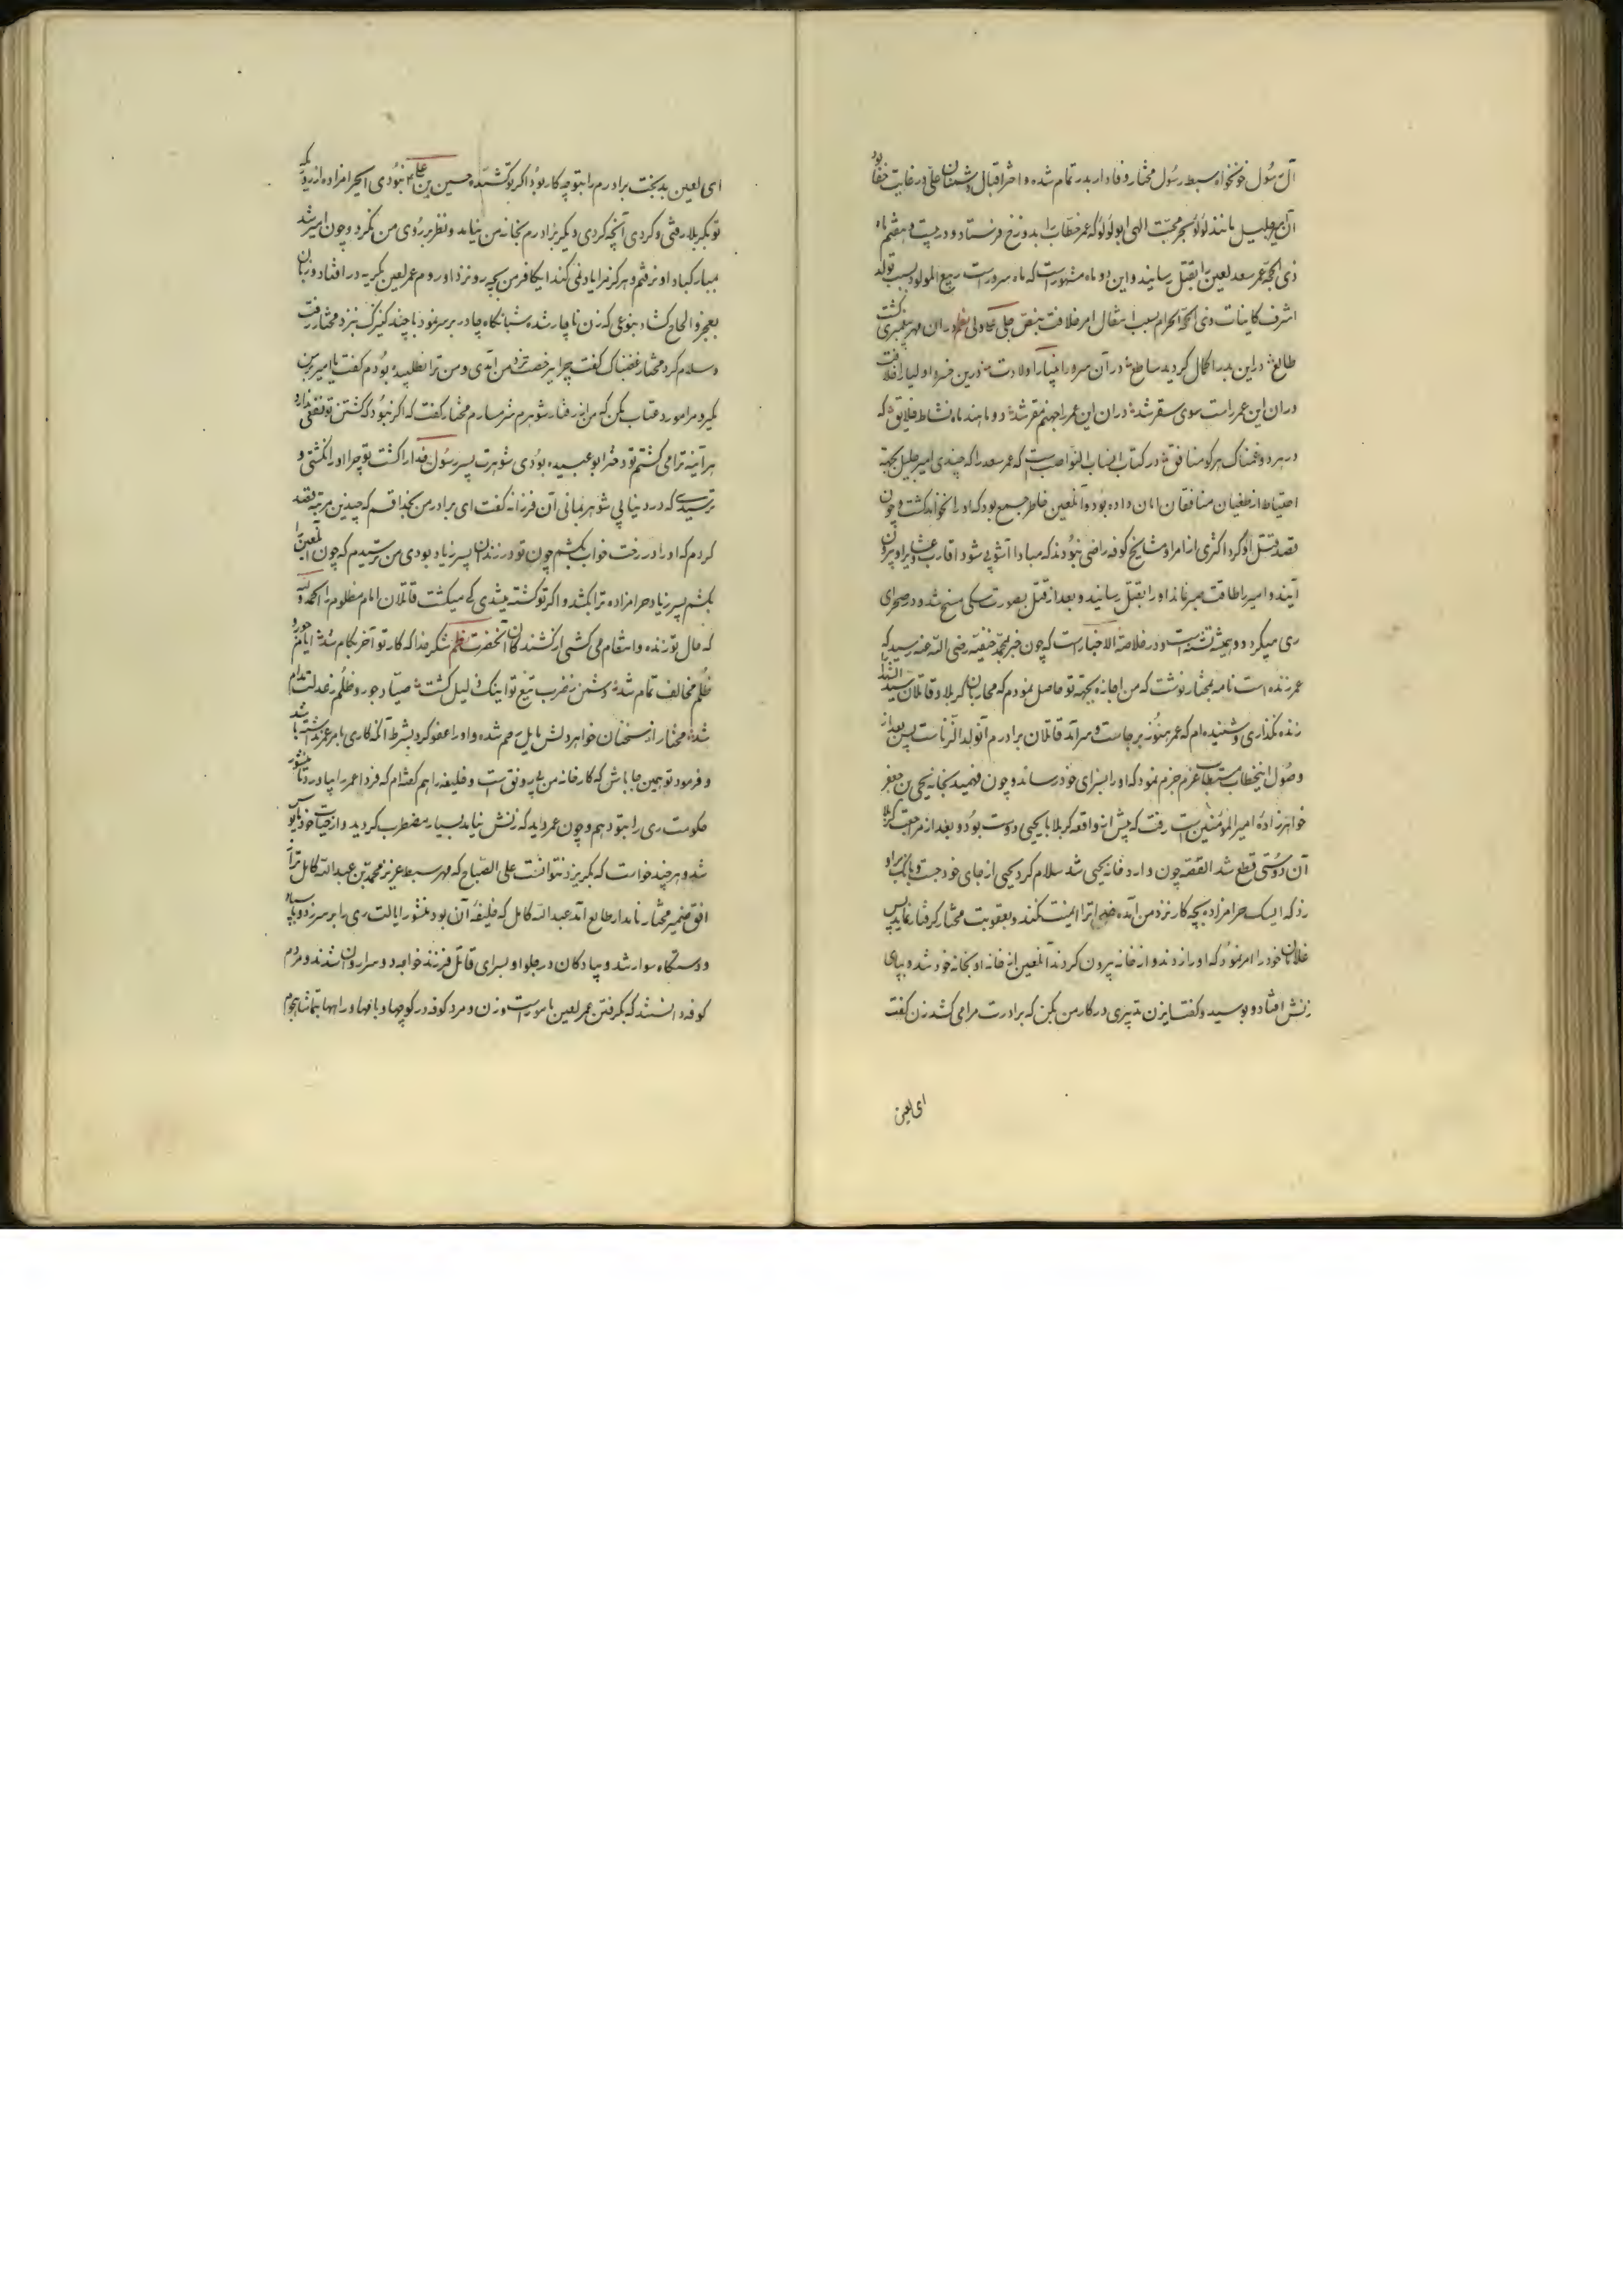 آل رسول خونخواه سبط رسول مختار وفادار بدر تمام شده و اختر اقبال دشمنان علی در غایت خفا بود
آن میر جلیل مانند لؤلؤ بحر محبت الهی ابولؤلؤ که عمر خطاب را بدوزخ فرستاد و در بیست و هفتم ماه
ذی الحجه عمر سعد لعین را بقتل رسانید و این دو ماه مشهور است که ماه سرور است ربیع المولود بسبب تولد
اشرف کاینات و ذی الحجة الحرام بسبب انتقال امر خلافت بنص جلی بعلی ولی نظم در ان مهر پیغمبری گشت
طالع در این بدر اکمال گردید ساطع در آن سرور انبیا را ولادت درین خسرو اولیا را خلافت
در ان این عمر راست سوی سقر شد در ان این عمر را جهنم مقر شد دو ماهند ماه نشاط خلایق که
در هر دو غمناک هر کو منافق در کتاب انساب النواصب است که عمر سعد را که چندی امیر جلیل بجهة
احتیاط از طغیان منافقان امان داده بود و آن لعین خاطر جمع بود که او را نخواهد کشت و چون
قصد قتل او کرد اکثری از امرا و مشایخ کوفه راضی نبودند که مبادا آشوبی شود اقارب و عشایر او بیرون
آیند و امیر را طاقت صبر نماند او را بقتل رسانید و بعد از قتل بصورت سگی مسخ شد و در صحرای
ری میگردد و همیشه تشنه است و در خلاصة الاخبار است که چون خبر بمحمد حنفیه رضی الله عنه رسید که
عمر زنده است نامه بمختار نوشت که من اجازه بجهة تو حاصل نمودم که محاربان کربلا و قاتلان سید الشهدا را
زنده نگذاری و شنیده ام که عمر هنوز برجاست و سرآمد قاتلان برادرم آن ولد الزناست پس بعد از
وصول این خطاب مستطاب عزم جزم نمود که او را بسزای خود رساند و چون فهمید بخانه یحیی بن جعفر
خواهرزاده امیر المؤمنین است رفت که پیش از واقعه کربلا با یحیی دوست بود و بعد از مراجعت کربلا
آن دوستی قطع شد القصه چون وارد خانه یحیی شد سلام کرد یحیی از جای خود جست و بانگ بر او
زد که ای سگ حرامزاده بچه کار نزد من آمده خدا ترا لعنت کند و بعقوبت مختار گرفتار نماید پس
غلامان خود را امر نمود که او را زدند و از خانه بیرون کردند آن لعین از خانه او بخانه خود شد و بپای
زنش افتاد و بوسید و گفت ایزن تدبیری در کار من بکن که برادرت مرا می کشد زن گفت
ای لعین
ای لعین بدبخت برادرم را بتو چه کار بود اگر تو کشنده حسین بن علی نبودی ای حرامزاده از روزیکه
تو بکربلا رفتی و کردی آنچه کردی دیگر برادرم بخانه من نیامد و نظر بر روی من نکرد و چون امیر شد
بمبارکباد او نرفتم و هرگز مرا یاد نمی کند ایکافر من بچه رو نزد او روم عمر لعین بگریه در افتاد و زبان
بعجز و الحاح گشاد بنوعی که زن ناچار شده شبانگاه چادر بر سر نمود با چند کنیزک نزد مختار رفت
و سلام کرد مختار غضبناک گفت چرا بیرخصت نزد من آمدی و من ترا نطلبیده بودم گفت یا امیر بر من
مگیر و مرا مورد عتاب مکن که من از رفتار شوهرم شرمسارم مختار گفت که اگر نبود که کشتن تو نقصی ندارد
هر آینه ترا می کشتم تو دختر ابو عبیده بودی شوهرت پسر رسول خدا را کشت تو چرا او را نکشتی و
ترسیدی که در دنیا بی شوهر بمانی آن فرزانه گفت ای برادر من بخدا قسم که چندین مرتبه قصد
کردم که او را در رخت خواب بکشم چون تو در زندان پسر زیاد بودی من ترسیدم که چون آن لعین را
بکشم پسر زیاد حرامزاده ترا بکشد و اگر تو کشته میشدی که میکشت قاتلان امام مظلوم را الحمد لله
که حال تو زنده و انتقام می کشی از کشندگان آنحضرت نظم شکر خدا که کار تو آخر بکام شد ایام جور و
ظلم مخالف تمام شد دشمن ز ضرب تیغ تو اینک ذلیل گشت صیاد جور و ظلم ز عدلت بدام
شد مختار از سخنان خواهر دلش مایل رحم شده و او را عفو کرد بشرط آنکه کاری با عمر نداشته باشد
و فرمود تو بهمین جا باش که کارخانه من بی رونق است و خلیفه را هم گفته ام که فردا عمر را بیاورد تا منشور
حکومت ری را بتو دهم و چون عمر دید که زنش نیامد بسیار مضطرب گردید و از حیات خود مایوس
شد و هر چند خواست که بگریزد نتوانست علی الصباح که مهر سبط عزیز محمد بن عبد الله کامل تر از
افق ضمیر مختار نامدار طالع آمد عبد الله کامل که خلیفه آن بود منشور ایالت ری را بر سر زد و با سپاه
و دستگاه سوار شد و پیادگان در جلو او بسرای قاتل فرزند خواجه دو سرا روان شدند و مردم
کوفه دانستند که بگرفتن عمر لعین مامور است و زن و مرد کوفه در کوچها و بامها و راهها بتماشا هجوم